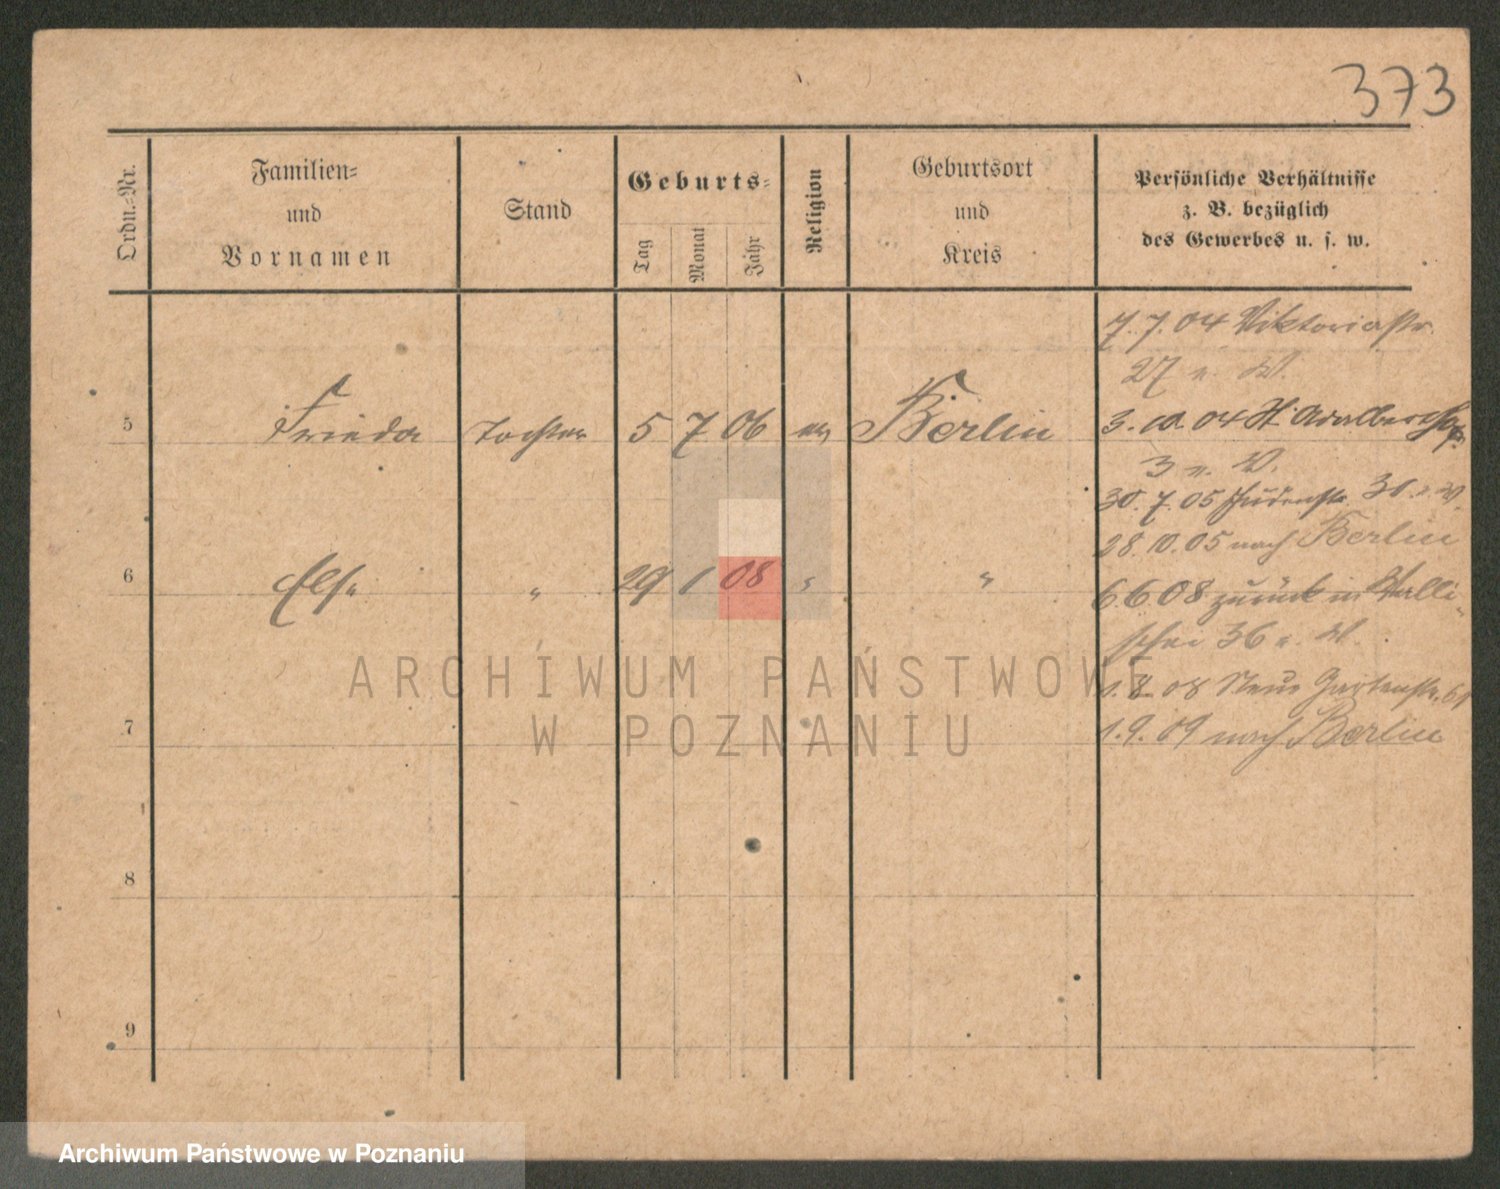 373
Ordn.-Nr.
Familien-
und
Vornamen
Stand
Geburts-
Tag
Monat
Jahr
Religion
Geburtsort
und
Kreis
Persönliche Verhältnisse
z. B. bezüglich
des Gewerbes u. s. w.
7.7.04 Viktoriastr.
27 W.
5 Frieda Tochter 5 7 06 ev Berlin
3.10.04 St. Adalbertstr.
3 W.
30.7.05 Judenstr. 30 W.
28.10.05 nach Berlin
6 Else " 29 1 08 " "
6.6.08 zurück in Walli-
schei 36 W.
1.8.08 Neue Gartenstr. 61
7
1.9.09 nach Berlin
8
9
ARCHIWUM PAŃSTWOWE
W POZNANIU
Archiwum Państwowe w Poznaniu